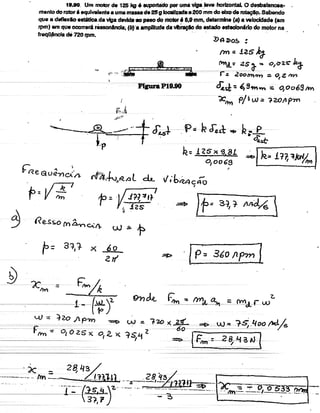 19.90 Um motor de 125 kg é suportado por uma viga leve horizontal. O desbalancea-
mento do rotor é equivalente a uma massa de 25 g localizada a 200 mm do eixo de rotação. Sabendo-
que a deflexão estática da viga devida ao peso do motor é 6,9 mm, determine (a) a velocidade (em
rpm) em que ocorrerá ressonância, (b) a amplitude da vibração do estado estacionário do motor na
freqüência de 720 rpm.
DADOS :
m = 125 kg
m₁ = 25 g = 0,025 kg
r = 200 mm = 0,2 m
δest = 6,9 mm = 0,0069 m
xm p/ ω = 720 rpm
Figura P19.90
δest P = k δest ⇒ k = P/δest
P
k = 125 x 9,81 / 0,0069 ⇒ k = 177,7 kN/m
Frequência natural de vibração
p = √(k/m) p = √(177717/125) ⇒ p = 37,7 rad/s
a) Ressonância ω = p
p = 37,7 x 60/2π ⇒ p = 360 rpm
b) xm = (Fm/k)/(1 - (ω/p)²) onde Fm = m₁ an = m₁ r ω²
ω = 720 rpm ⇒ ω = 720 x 2π/60 ⇒ ω = 75,400 rad/s
Fm = 0,025 x 0,2 x 75,4² ⇒ Fm = 28,43 N
xm = (28,43/177717)/(1 - (75,4/37,7)²) = (28,43/177717)/-3 ⇒ xm = - 0,0533 mm